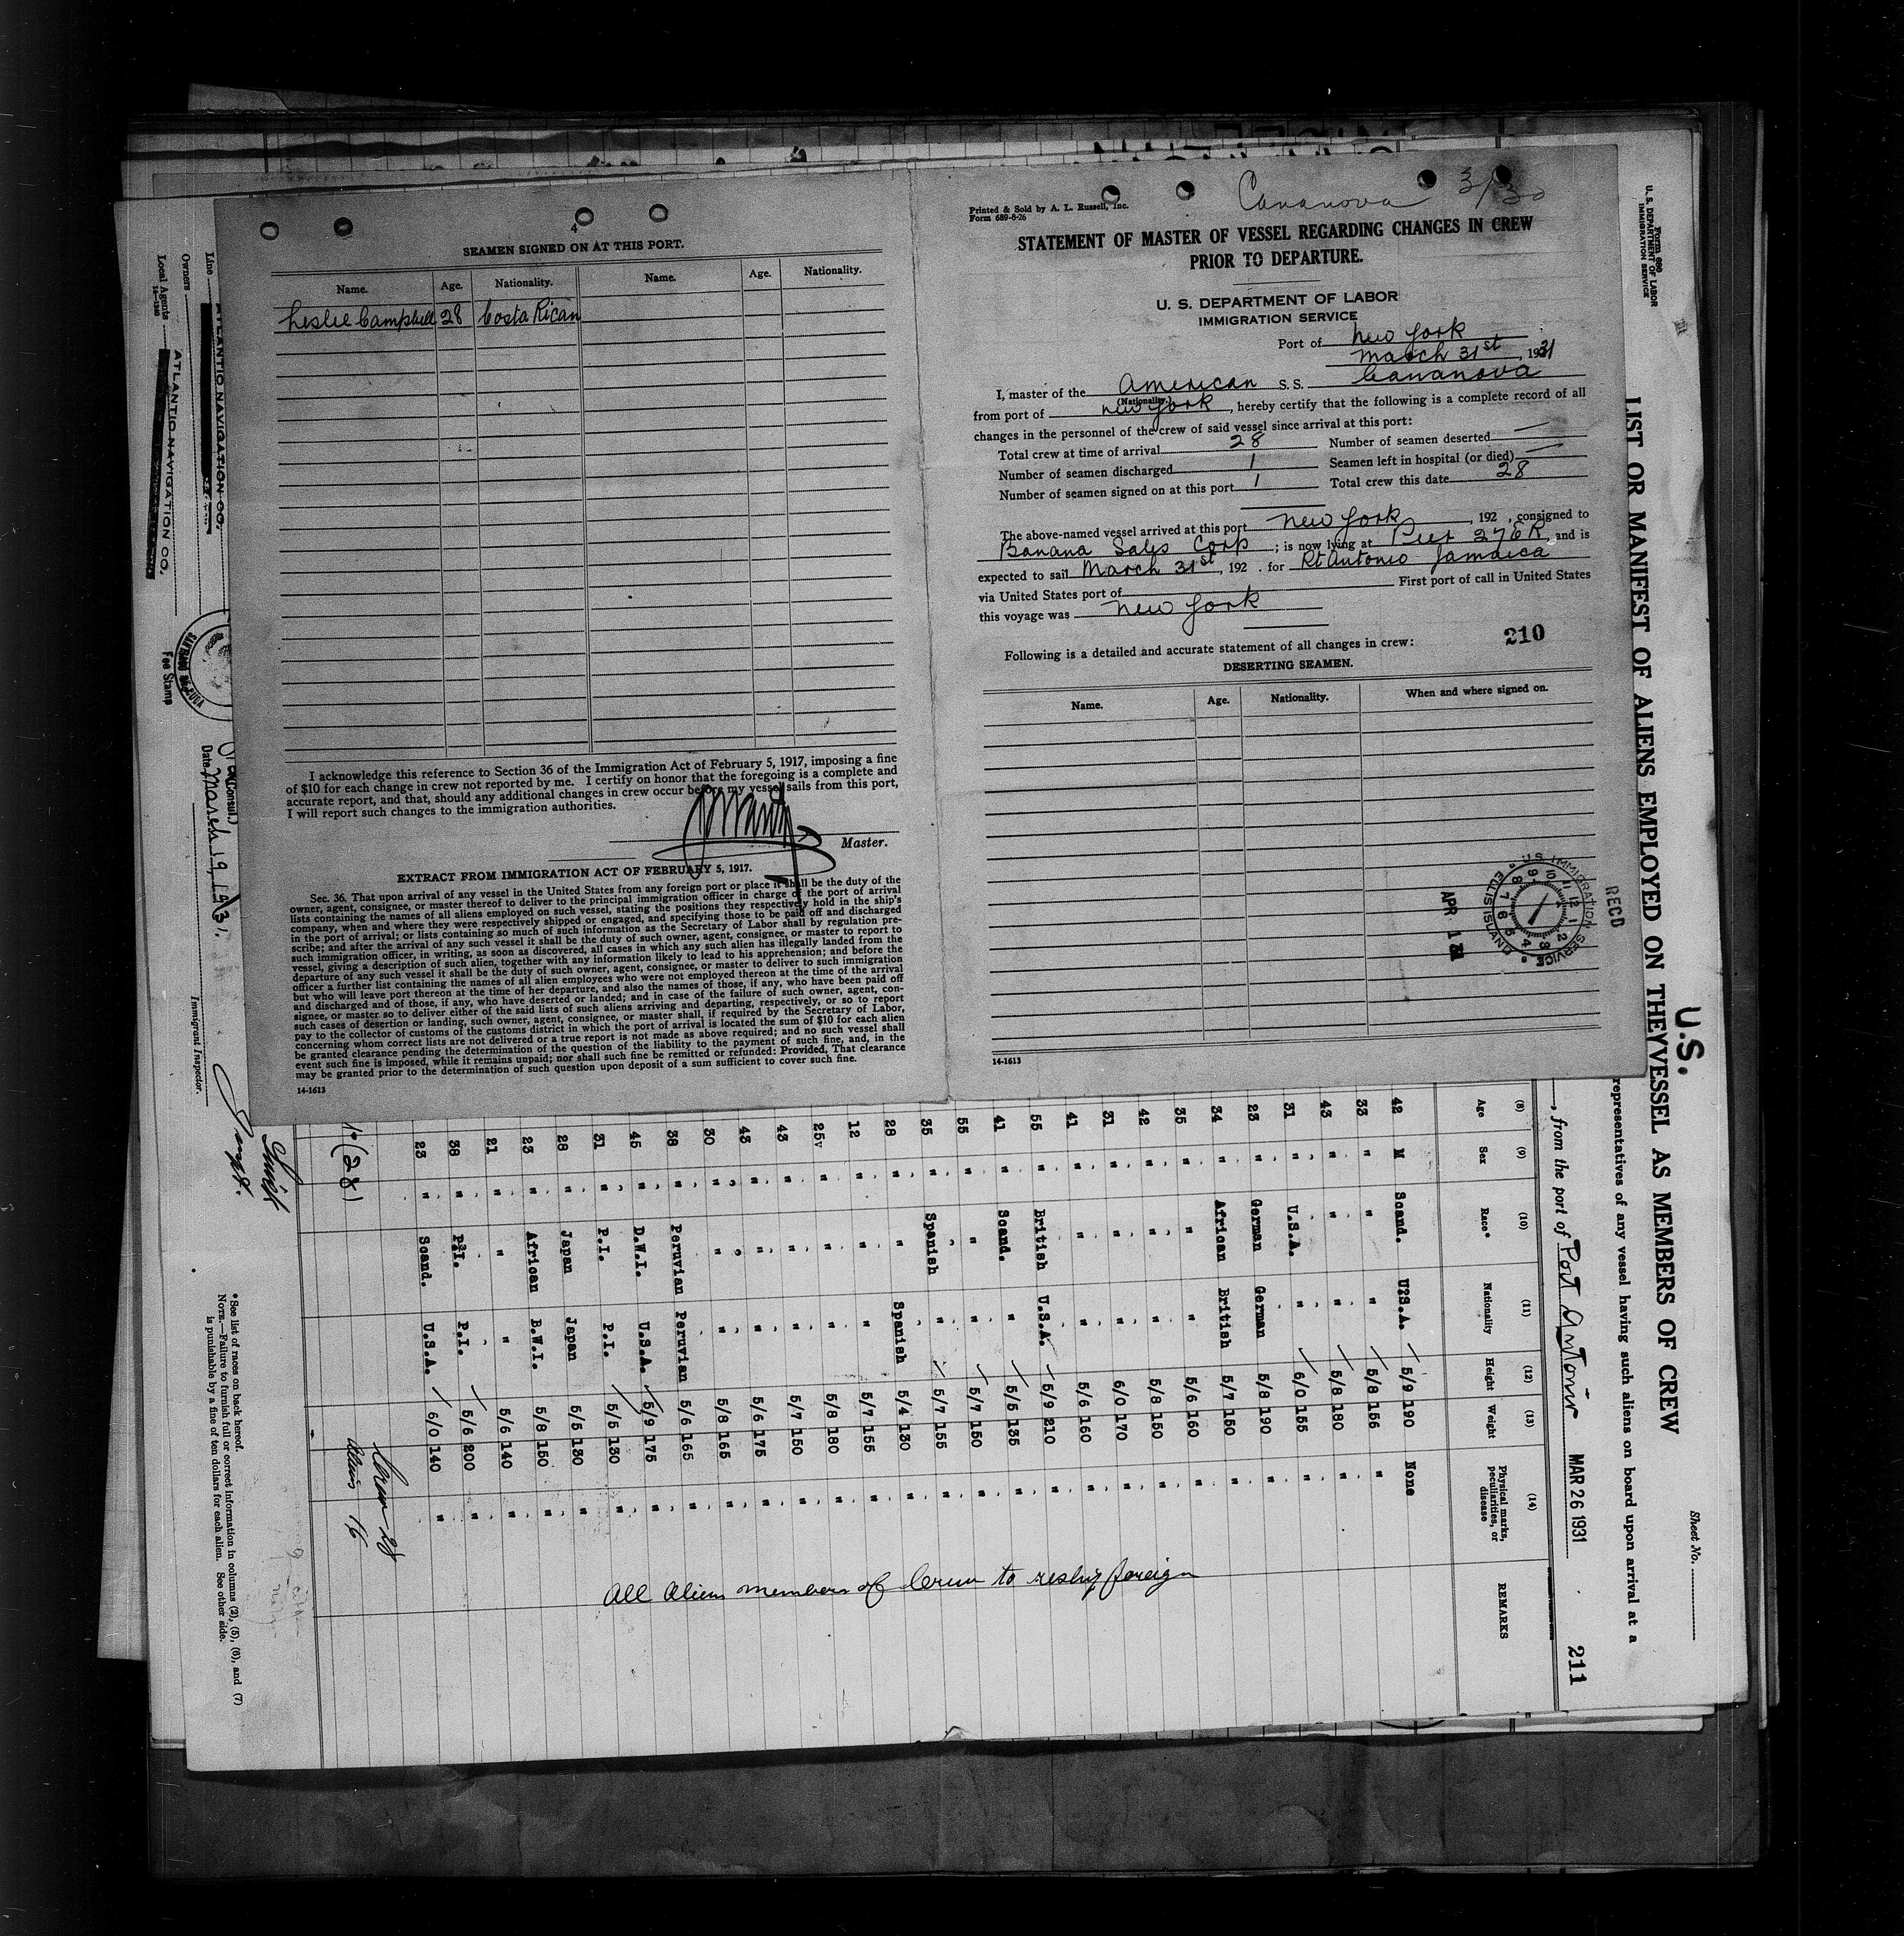 4
SEAMEN SIGNED ON AT THIS PORT.
Name. Age. Nationality. Name. Age. Nationality.
Leslie Campbell 28 Costa Rican
I acknowledge this reference to Section 36 of the Immigration Act of February 5, 1917, imposing a fine
of $10 for each change in crew not reported by me. I certify on honor that the foregoing is a complete and
accurate report, and that, should any additional changes in crew occur before my vessel sails from this port,
I will report such changes to the immigration authorities.
Master.
EXTRACT FROM IMMIGRATION ACT OF FEBRUARY 5, 1917.
Sec. 36. That upon arrival of any vessel in the United States from any foreign port or place it shall be the duty of the
owner, agent, consignee, or master thereof to deliver to the principal immigration officer in charge of the port of arrival
lists containing the names of all aliens employed on such vessel, stating the positions they respectively hold in the ship's
company, when and where they were respectively shipped or engaged, and specifying those to be paid off and discharged
in the port of arrival; or lists containing so much of such information as the Secretary of Labor shall by regulation pre-
scribe; and after the arrival of any such vessel it shall be the duty of such owner, agent, consignee, or master to report to
such immigration officer, in writing, as soon as discovered, all cases in which any such alien has illegally landed from the
vessel, giving a description of such alien, together with any information likely to lead to his apprehension; and before the
departure of any such vessel it shall be the duty of such owner, agent, consignee, or master to deliver to such immigration
officer a further list containing the names of all alien employees who were not employed thereon at the time of the arrival
but who will leave port thereon at the time of her departure, and also the names of those, if any, who have been paid off
and discharged and of those, if any, who have deserted or landed; and in case of the failure of such owner, agent, con-
signee, or master so to deliver either of the said lists of such aliens arriving and departing, respectively, or so to report
such cases of desertion or landing, such owner, agent, consignee, or master shall, if required by the Secretary of Labor,
pay to the collector of customs of the customs district in which the port of arrival is located the sum of $10 for each alien
concerning whom correct lists are not delivered or a true report is not made as above required; and no such vessel shall
be granted clearance pending the determination of the question of the liability to the payment of such fine, and, in the
event such fine is imposed, while it remains unpaid; nor shall such fine be remitted or refunded: Provided, That clearance
may be granted prior to the determination of such question upon deposit of a sum sufficient to cover such fine.
14-1613
Cananova 3/30
Printed & Sold by A. L. Russell, Inc.
Form 689-8-26
STATEMENT OF MASTER OF VESSEL REGARDING CHANGES IN CREW
PRIOR TO DEPARTURE.
U. S. DEPARTMENT OF LABOR
IMMIGRATION SERVICE
Port of New York
March 31st, 1931
I, master of the American S. S. Cananova
(Nationality)
from port of New York, hereby certify that the following is a complete record of all
changes in the personnel of the crew of said vessel since arrival at this port:
Total crew at time of arrival 28 Number of seamen deserted —
Number of seamen discharged 1 Seamen left in hospital (or died) —
Number of seamen signed on at this port 1 Total crew this date 28
The above-named vessel arrived at this port New York, 192 , consigned to
Banana Sales Corp; is now lying at Pier 27 ER, and is
expected to sail March 31st, 192 . for Pt Antonio Jamaica
via United States port of First port of call in United States
this voyage was New York
210
Following is a detailed and accurate statement of all changes in crew:
DESERTING SEAMEN.
Name. Age. Nationality. When and where signed on.
U.S. IMMIGRATION SERVICE ELLIS ISLAND
REC'D
APR 1 31
14-1613
Form 680
U. S. DEPARTMENT OF LABOR
IMMIGRATION SERVICE
Sheet No.
U.S.
LIST OR MANIFEST OF ALIENS EMPLOYED ON THE VESSEL AS MEMBERS OF CREW
representatives of any vessel having such aliens on board upon arrival at a
, from the port of Port Antonio MAR 26 1931 211
(8) (9) (10) (11) (12) (13) (14)
Age Sex Race* Nationality Height Weight Physical marks, peculiarities, or disease REMARKS
42 M Scand. U?S.A. 5/9 190 None
33 " " " 5/8 156 "
43 " " " 5/8 180 "
31 " U.S.A. " 6/0 155 "
23 " German German 5/8 190 "
34 " African British 5/7 150 "
35 " " " 5/6 160 "
42 " " " 5/8 150 "
31 " " " 6/0 170 "
41 " " " 5/6 160 "
55 " British U.S.A. 5/9 210 "
41 " Scand. " 5/5 135 "
55 " " " 5/7 150 "
35 " Spanish " 5/7 155 "
28 " " Spanish 5/4 130 "
12 " " " 5/7 155 "
25 " " " 5/8 180 "
43 " " " 5/7 150 "
43 " " " 5/6 175 "
30 " " " 5/8 165 "
38 " Peruvian Peruvian 5/6 165 "
45 " D.W.I. U.S.A. 5/9 175 "
31 " P.I. P.I. 5/5 130 "
28 " Japan Japan 5/5 130 "
23 " African B.W.I. 5/8 150 "
21 " " " 5/6 140 "
38 " P?I. P.I. 5/6 200 "
23 " Scand. U.S.A. 6/0 140 "
All Aliens members of Crew to reship foreign
(28)
Crew 28
Aliens 16
*See list of races on back hereof.
NOTE.—Failure to furnish full or correct information in columns (2), (5), (6), and (7)
is punishable by a fine of ten dollars for each alien. See other side.
Line ATLANTIC NAVIGATION CO,
Owners ATLANTIC NAVIGATION CO,
Local Agents
14-1240
Fee Stamp
Consul.)
Date March 19, 1931.
Immigrant Inspector.